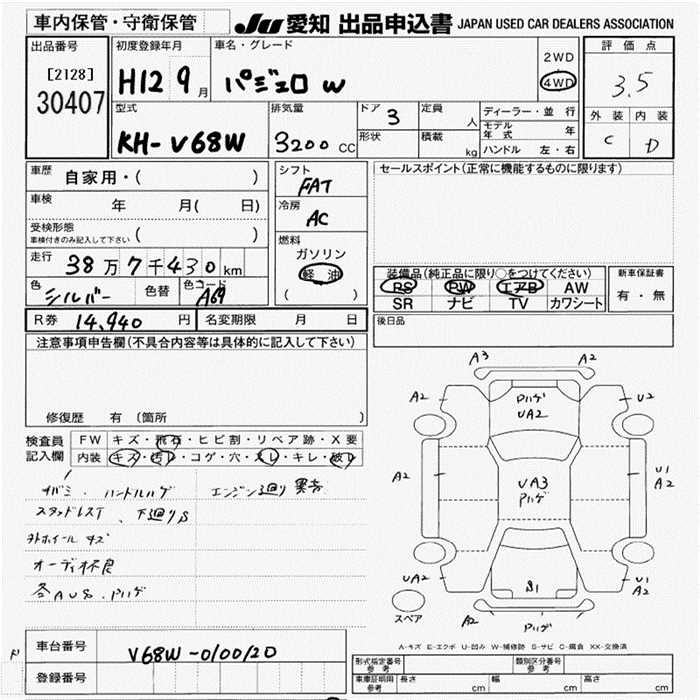 車内保管・守衛保管
JU 愛知 出品申込書 JAPAN USED CAR DEALERS ASSOCIATION
出品番号
[2128]
30407
初度登録年月
H12 9月
車名・グレード
パジェロ W
2WD
4WD
評価点
3.5
外装 内装
C D
型式
KH-V68W
排気量
3200 CC
ドア 3
形状
定員 人
積載 kg
ディーラー・並行
モデル年式 年
ハンドル 左・右
車歴 自家用・( )
車検 年 月( 日)
受検形態
車検付きのみ記入して下さい ( )
走行 38万7千430km
色 シルバー 色替 色コード A69
R券 14,940円 名変期限 月 日
シフト
FAT
冷房
AC
燃料
ガソリン
軽油
( )
セールスポイント(正常に機能するものに限ります)
装備品(純正品に限り○をつけてください)
PS PW エアB AW
SR ナビ TV カワシート
新車保証書
有・無
後日品
注意事項申告欄(不具合内容等は具体的に記入して下さい)
修復歴 有 〔箇所
検査員記入欄
FW キズ・飛石・ヒビ割・リペア跡・X要
内装 キズ・汚れ・コゲ・穴・スレ・キレ・破れ
ハンドルハゲ エンジン廻り
スタッドレスT、下廻りS
外ホイールキズ
オーディオ不良
各AUS.Pハゲ
A3 A2
A2 Pハゲ U2
UA2
A2 UA3 U1
Pハゲ A2
UA2 S1 U1
A2
スペア A2 Pハゲ
A-キズ E-エクボ U-凹み W-補修跡 S-サビ C-腐食 XX-交換済
車台番号 V68W-0100120
登録番号
形式指定番号参考 類別区分番号参考
車庫証明用参考 長さ cm 幅 cm 高さ cm